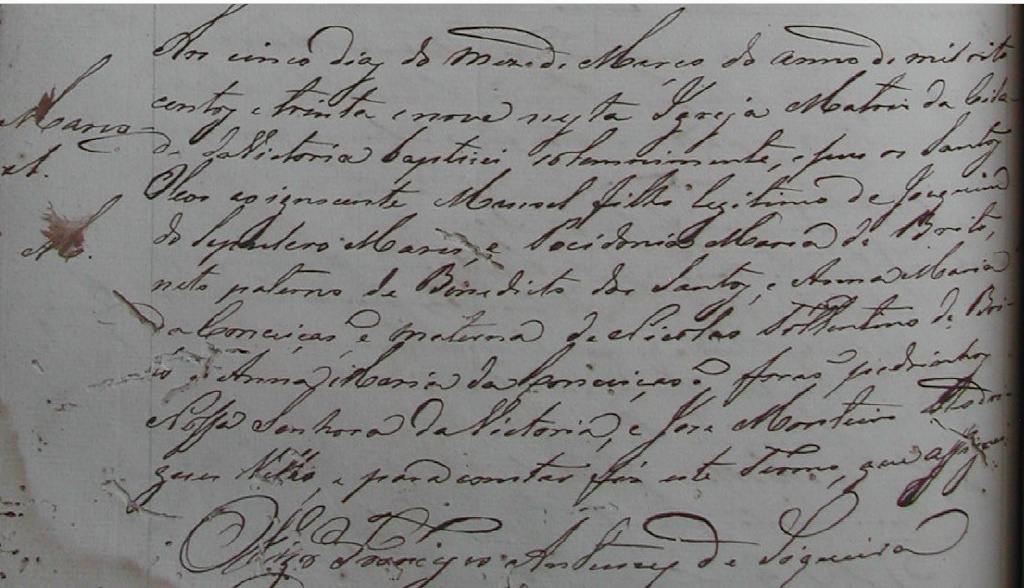 Aos cinco dias do mez de Março do anno de mil oito
centos e trinta e nove nesta Igreja Matriz da Cida-
Março
de da Victoria baptizei solemnemente, e puz os Santos
Oleos ao ignocente Manoel filho legitimo de Joaquim
do Maria de Brito,
neto paterno de Benedicto dos Santos, e Anna Maria
da Conceição, e materno de Nicolao Tollentino de Bri-
to e Anna Maria da Conceição, forão padrinhos
Nossa Senhora da Victoria, e Jose Monteiro Rodri-
gues e para constar fiz este Termo, que assignei
Francisco Antunes de Siqueira